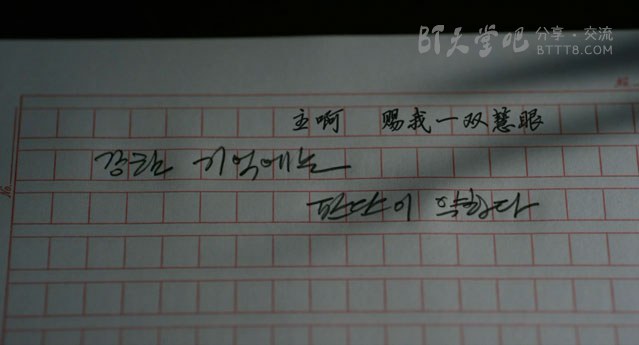 BT天堂吧 分享·交流
BTTT8.COM
主啊 赐我一双慧眼
강한 기억에는
판단이 약하다